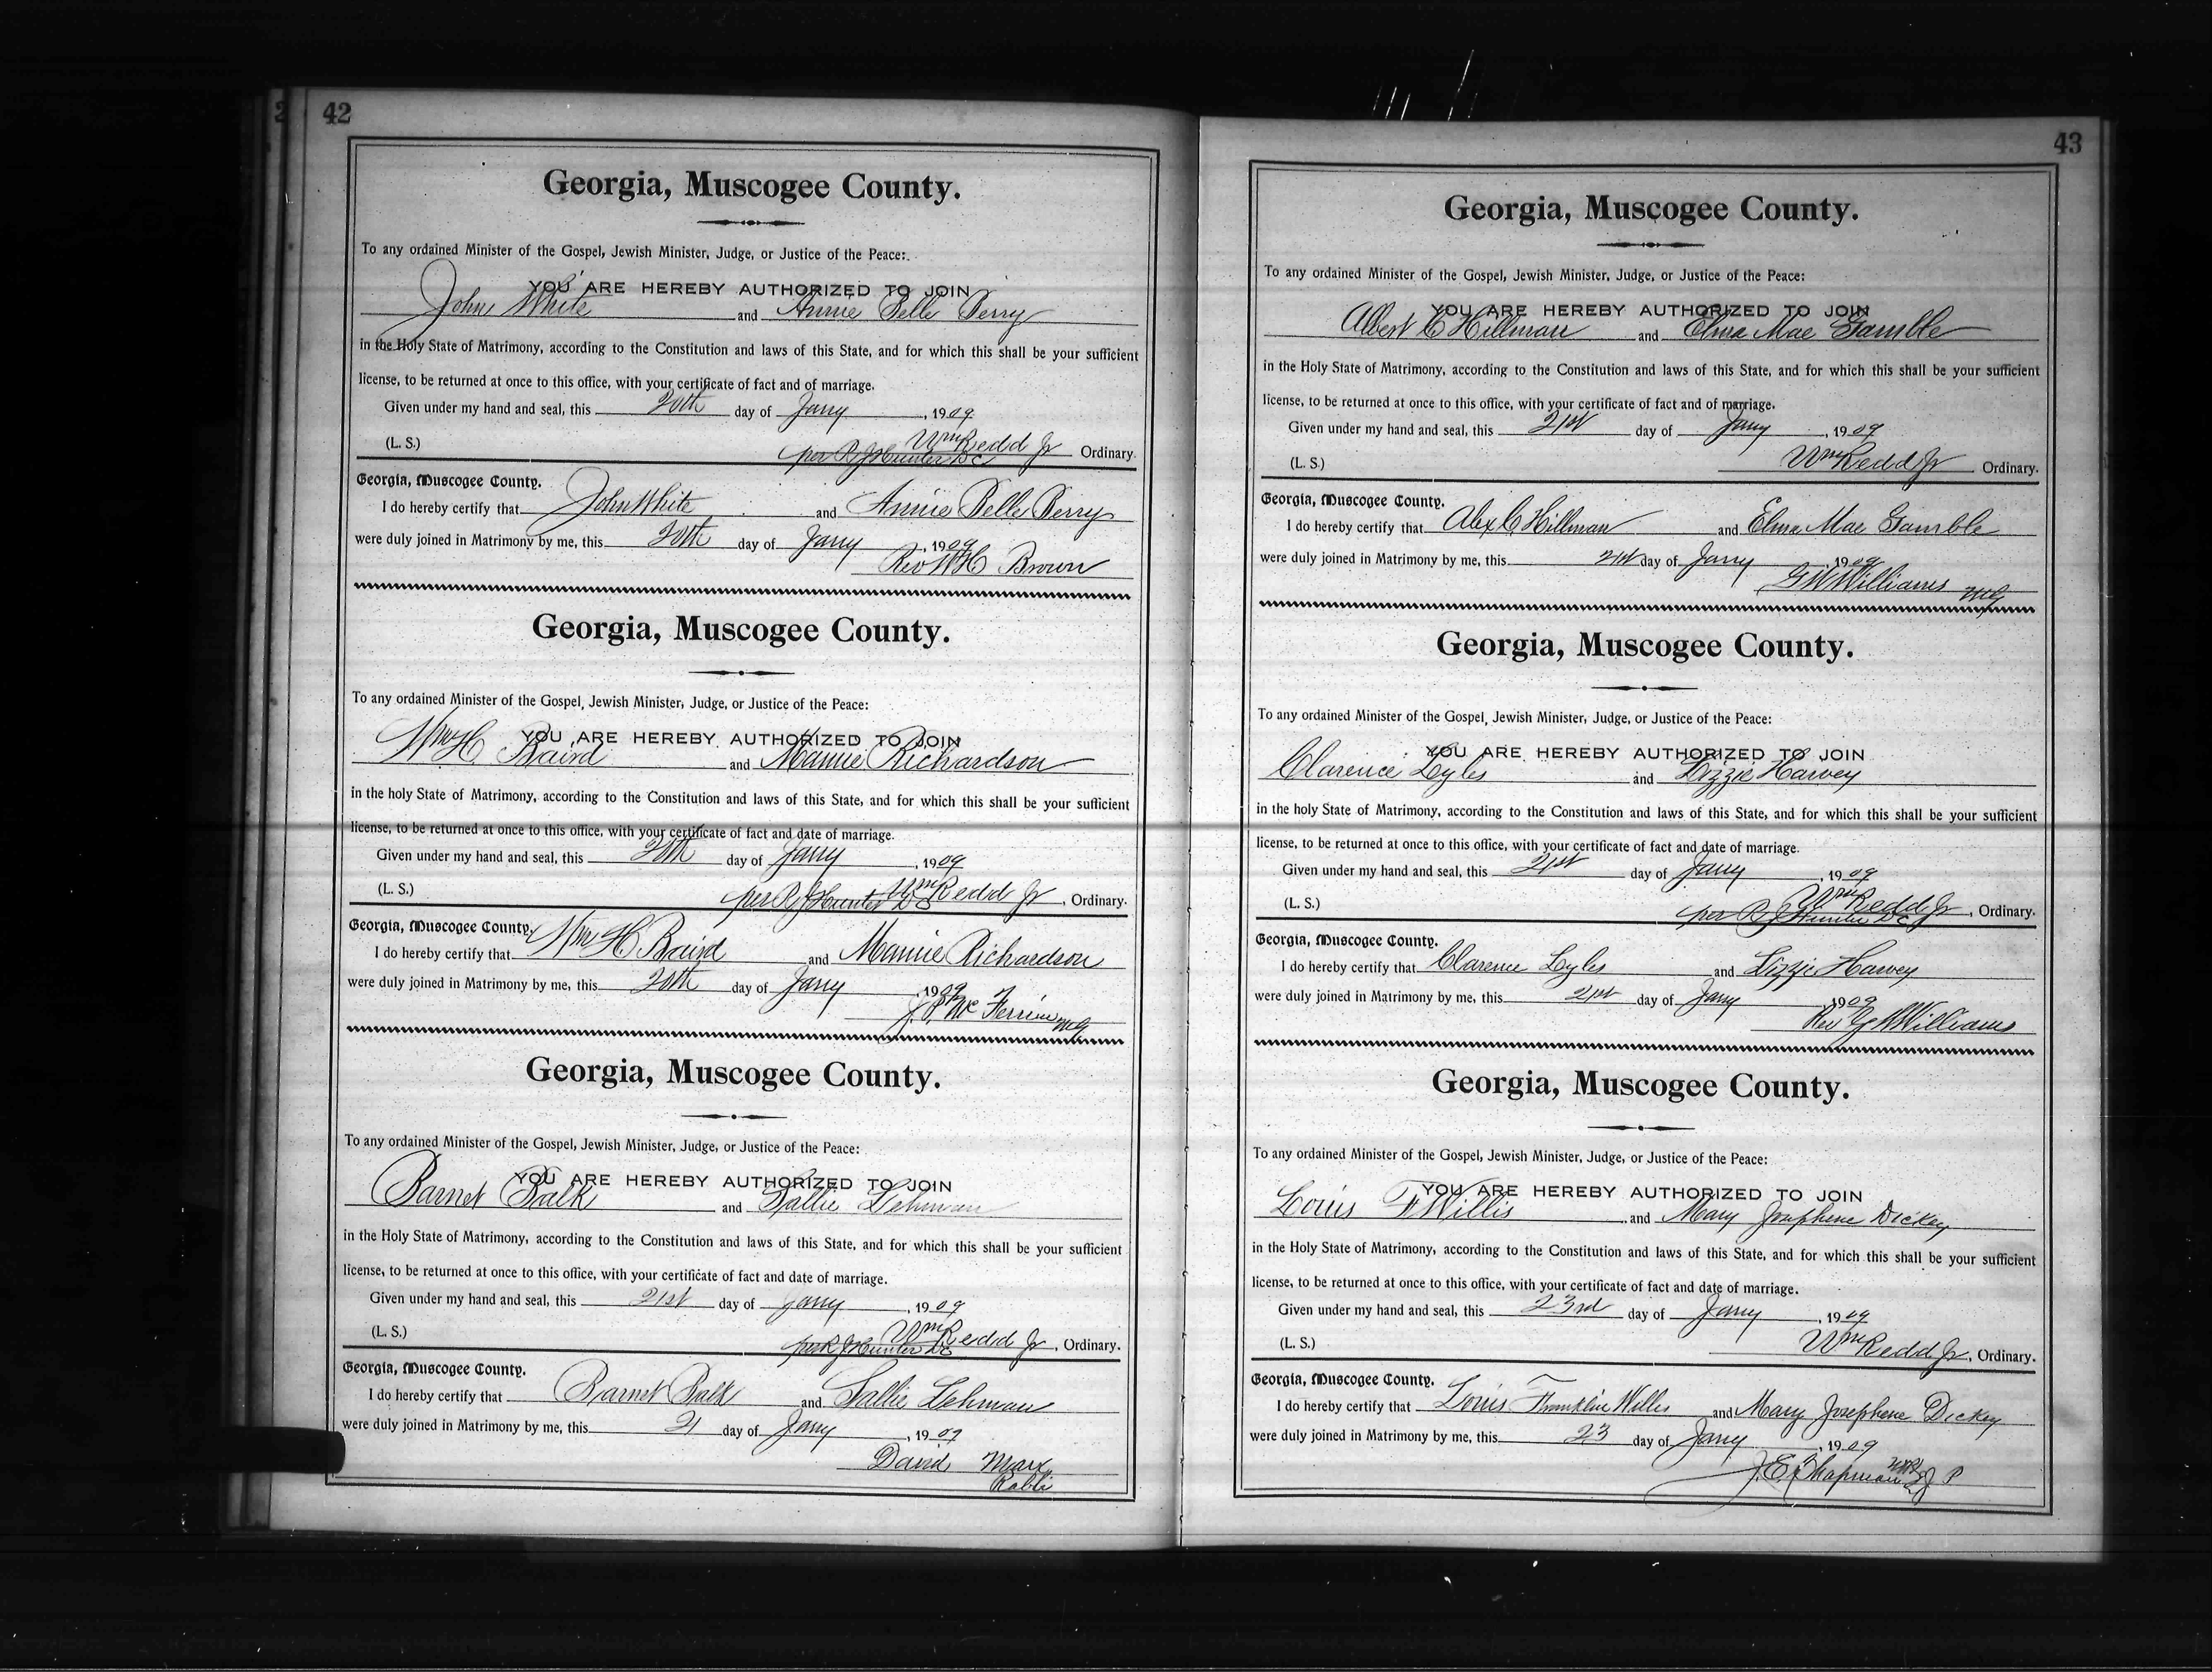 42
Georgia, Muscogee County.
To any ordained Minister of the Gospel, Jewish Minister, Judge, or Justice of the Peace:
YOU ARE HEREBY AUTHORIZED TO JOIN
John White and Annie Belle Perry
in the Holy State of Matrimony, according to the Constitution and laws of this State, and for which this shall be your sufficient
license, to be returned at once to this office, with your certificate of fact and of marriage.
Given under my hand and seal, this 20th day of Jany, 1909
(L. S.) Wm Redd Jr Ordinary.
per R J Hunter DC
Georgia, Muscogee County.
I do hereby certify that John White and Annie Belle Perry
were duly joined in Matrimony by me, this 20th day of Jany, 1909
Rev W H Brown
Georgia, Muscogee County.
To any ordained Minister of the Gospel, Jewish Minister, Judge, or Justice of the Peace:
YOU ARE HEREBY AUTHORIZED TO JOIN
Wm H Baird and Mamie Richardson
in the holy State of Matrimony, according to the Constitution and laws of this State, and for which this shall be your sufficient
license, to be returned at once to this office, with your certificate of fact and date of marriage.
Given under my hand and seal, this 20th day of Jany, 1909
(L. S.) Wm Redd Jr, Ordinary.
per R J Hunter DC
Georgia, Muscogee County.
I do hereby certify that Wm H Baird and Mamie Richardson
were duly joined in Matrimony by me, this 20th day of Jany, 1909
J. P. McFerrin MG
Georgia, Muscogee County.
To any ordained Minister of the Gospel, Jewish Minister, Judge, or Justice of the Peace:
YOU ARE HEREBY AUTHORIZED TO JOIN
Barnet Balk and Sallie Lehman
in the Holy State of Matrimony, according to the Constitution and laws of this State, and for which this shall be your sufficient
license, to be returned at once to this office, with your certificate of fact and date of marriage.
Given under my hand and seal, this 21st day of Jany, 1909
(L. S.) Wm Redd Jr, Ordinary.
per R J Hunter DC
Georgia, Muscogee County.
I do hereby certify that Barnet Balk and Sallie Lehman
were duly joined in Matrimony by me, this 21 day of Jany, 1909
David Marx
Rabbi
43
Georgia, Muscogee County.
To any ordained Minister of the Gospel, Jewish Minister, Judge, or Justice of the Peace:
YOU ARE HEREBY AUTHORIZED TO JOIN
Albert C Hillman and Elma Mae Gamble
in the Holy State of Matrimony, according to the Constitution and laws of this State, and for which this shall be your sufficient
license, to be returned at once to this office, with your certificate of fact and of marriage.
Given under my hand and seal, this 21st day of Jany, 1909
(L. S.) Wm Redd Jr Ordinary.
Georgia, Muscogee County.
I do hereby certify that Alex C Hillman and Elma Mae Gamble
were duly joined in Matrimony by me, this 21st day of Jany 1909
G W Williams MG
Georgia, Muscogee County.
To any ordained Minister of the Gospel, Jewish Minister, Judge, or Justice of the Peace:
YOU ARE HEREBY AUTHORIZED TO JOIN
Clarence Lyles and Lizzie Harvey
in the holy State of Matrimony, according to the Constitution and laws of this State, and for which this shall be your sufficient
license, to be returned at once to this office, with your certificate of fact and date of marriage.
Given under my hand and seal, this 21st day of Jany, 1909
(L. S.) Wm Redd Jr, Ordinary.
per R J Hunter DC
Georgia, Muscogee County.
I do hereby certify that Clarence Lyles and Lizzie Harvey
were duly joined in Matrimony by me, this 21st day of Jany 1909
Rev G W Williams
Georgia, Muscogee County.
To any ordained Minister of the Gospel, Jewish Minister, Judge, or Justice of the Peace:
YOU ARE HEREBY AUTHORIZED TO JOIN
Louis F Willis and Mary Josephene Dickey
in the Holy State of Matrimony, according to the Constitution and laws of this State, and for which this shall be your sufficient
license, to be returned at once to this office, with your certificate of fact and date of marriage.
Given under my hand and seal, this 23rd day of Jany, 1909
(L. S.) Wm Redd Jr, Ordinary.
Georgia, Muscogee County.
I do hereby certify that Louis Franklin Willis and Mary Josephene Dickey
were duly joined in Matrimony by me, this 23 day of Jany, 1909
J. E. Chapman J P